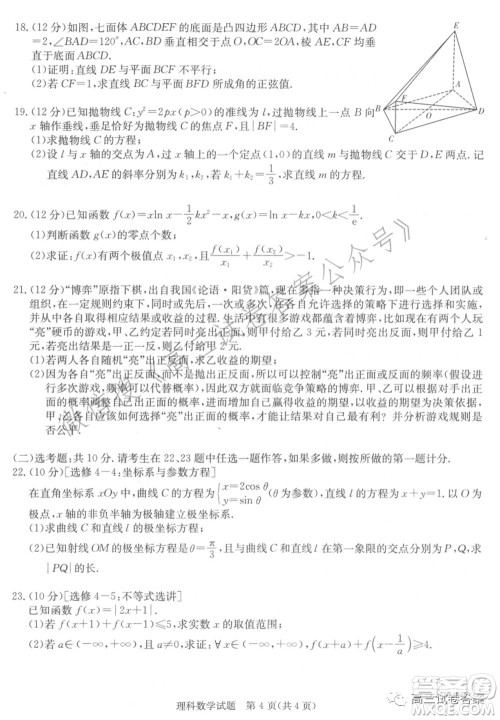 18.(12分)如图,七面体 ABCDEF 的底面是凸四边形 ABCD,其中 AB=AD
=2,∠BAD=120°,AC,BD 垂直相交于点 O,OC=2OA,棱 AE,CF 均垂
直于底面 ABCD.
(1)证明:直线 DE 与平面 BCF 不平行;
(2)若 CF=1,求直线 BC 与平面 BFD 所成角的正弦值.
E
A
B
O
D
C
19.(12分)已知抛物线 C:y²=2px(p>0)的准线为 l,过抛物线上一点 B 向
x 轴作垂线,垂足恰好为抛物线 C 的焦点 F,且|BF|=4.
(1)求抛物线 C 的方程;
(2)设 l 与 x 轴的交点为 A,过 x 轴上的一个定点(1,0)的直线 m 与抛物线 C 交于 D,E 两点.记
直线 AD,AE 的斜率分别为 k₁,k₂,若 k₁+k₂=1/3,求直线 m 的方程.
20.(12分)已知函数 f(x)=xln x-1/2kx²-x,g(x)=ln x-kx,0<k<1/e.
(1)判断函数 g(x)的零点个数;
(2)求证:f(x)有两个极值点 x₁,x₂,且 f(x₁)/x₁+f(x₂)/x₂>-1.
21.(12分)“博弈”原指下棋,出自我国《论语·阳货》篇,现在多指一种决策行为,即一些个人团队或
组织,在一定规则约束下,同时或先后,一次或多次,在各自允许选择的策略下进行选择和实施,
并从中各自取得相应结果或收益的过程.生活中有很多游戏都蕴含着博弈,比如现在有两个人玩
“亮”硬币的游戏,甲、乙约定若同时亮出正面,则甲付给乙 3 元,若同时亮出反面,则甲付给乙 1 元,
若亮出结果是一正一反,则乙付给甲 2 元.
(1)若两人各自随机“亮”出正反面,求乙收益的期望;
(2)因为各自“亮”出正反面,而不是抛出正反面,所以可以控制“亮”出正面或反面的频率(假设
进行多次游戏,频率可以代替概率),因此双方就面临竞争策略的博弈.甲、乙可以控制“亮”出正
面的概率分别为 x 和 y,
性最大,以便求自己最有利?并分析游戏规则是
否公平.
(二)选考题:共 10 分.请考生在 22、23 题中任选一题作答,如果多做,则按所做的第一题计分.
22.(10分)[选修 4-4:坐标系与参数方程]
在直角坐标系 xOy 中,曲线 C 的参数方程为{x=2cos θ
y=sin θ(θ为参数),直线 l 的方程为 x+y=1.以坐标原点为极点,
x 轴的非负半轴为极轴建立极坐标系.
(1)求曲线 C 和直线 l 的极坐标方程;
(2)已知射线 OM 的极坐标方程是 θ=π/3,且与曲线 C 和直线 l 在第一象限的交点分别为 P,Q,求
|PQ|的长.
23.(10分)[选修 4-5:不等式选讲]
已知函数 f(x)=|2x+1|.
(1)若 f(x+1)+f(x)<4,求实数 x 的取值范围;
(2)若 a∈(-∞,+∞),且 a≠0,求证:∀x∈(-∞,+∞),f(x+a)+f(x-1/a)≥4.
理科数学试题 第 4 页(共 4 页)
高三试卷答案